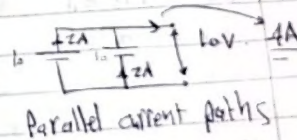 2A
10
2A
10V
4A
Parallel current paths